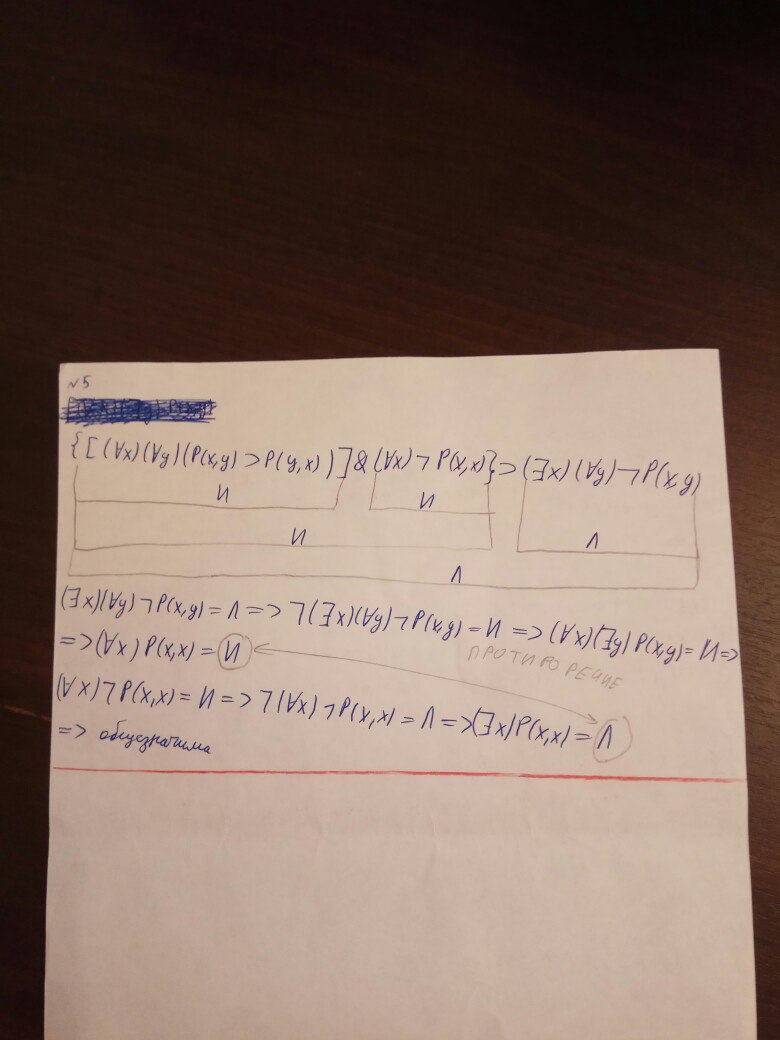 №5
{[(∀x)(∀y)(P(x,y) ⊃ P(y,x))] & (∀x)¬P(x,x)} ⊃ (∃x)(∀y)¬P(x,y)
И И
И Л
Л
(∃x)(∀y)¬P(x,y)=Л => ¬(∃x)(∀y)¬P(x,y)=И => (∀x)(∃y)P(x,y)=И =>
=> (∀x)P(x,x)=И ПРОТИВОРЕЧИЕ
(∀x)¬P(x,x)=И => ¬(∀x)¬P(x,x)=Л => (∃x)P(x,x)=Л
=> общезначима